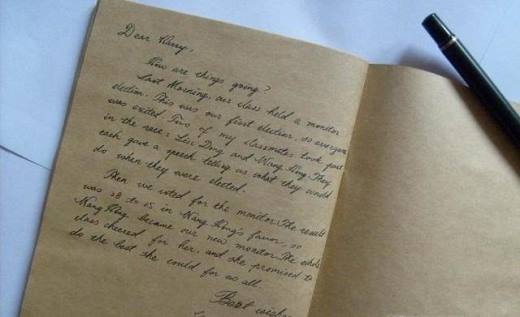 Dear Harry,
How are things going?
Last Morning, our class held a monitor
election. This was our first election, so everyone
was exited. Two of my classmates took part
in the race: Liu Ding and Wang Ping. They
each gave a speech telling us what they would
do when they were elected.
Then we voted for the monitor. The result
was 28 to 15 in Wang Ping's favor, so
Wang Ping became our new monitor. The whole
class cheered for her and she promised to
do the best she could for us all.
Best wishes